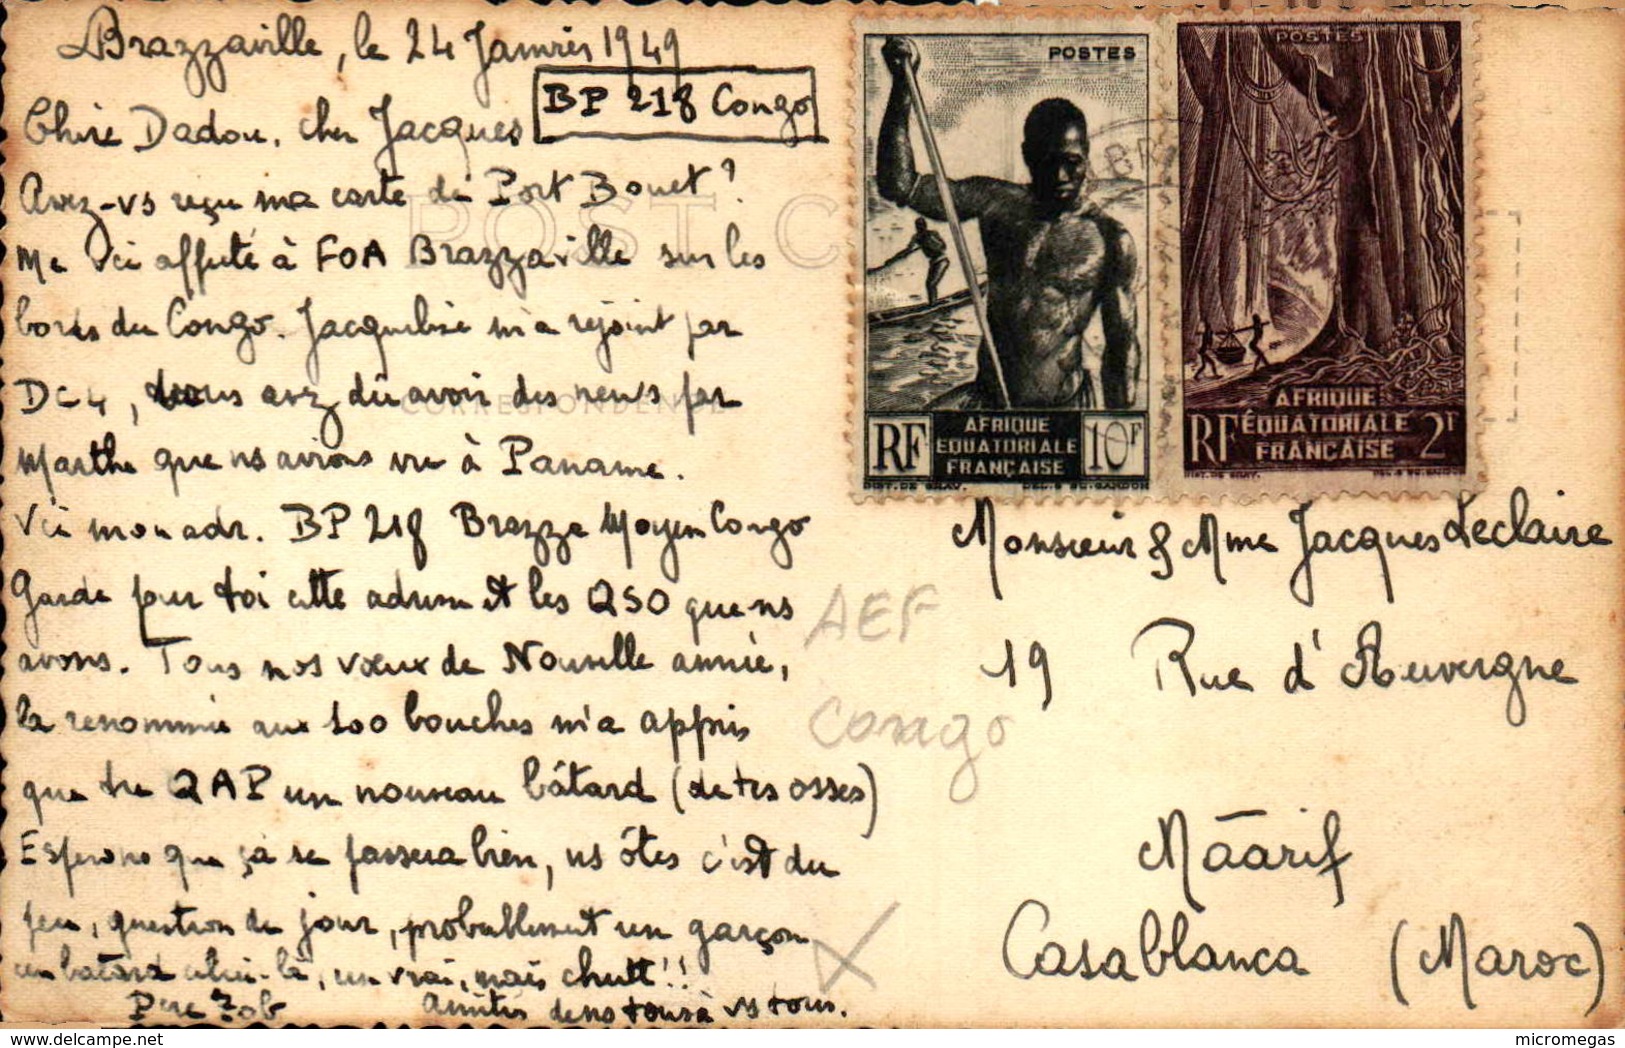 Brazzaville, le 24 Janvier 1949
BP 218 Congo
Chère Dadou, cher Jacques
Avez-vs reçu ma carte de Port Bouet?
Me voici affecté à FOA Brazzaville sur les
bords du Congo. Jacqueline m'a rejoint par
DC4, vous avez dû avoir des news par
Marthe que ns avions vue à Paname.
Vci mon adr. BP 218 Brazza Moyen Congo
Garde pour toi cette adresse et les QSO que ns
avons. Tous nos vœux de Nouvelle année,
la renommée aux 100 bouches m'a appris
que tu QAP un nouveau bâtard (de tes osses)
Espérons que ça se passera bien, ns ôtes c'est du
peu, question de jour, probablement un garçon
un batard celui-là, un vrai, mais chutt!!
Père Zob Amitiés de ns tous à vs tous.
POST C
CORRESPONDENCE
AEF
Congo
POSTES
RF AFRIQUE EQUATORIALE FRANÇAISE 10F
INST. DE GRAV.
POSTES
RF AFRIQUE ÉQUATORIALE FRANÇAISE 2F
INST. DE GRAV.
Monsieur & Mme Jacques Leclaire
19 Rue d'Auvergne
Mâarif
Casablanca (Maroc)
www.delcampe.net
micromegas